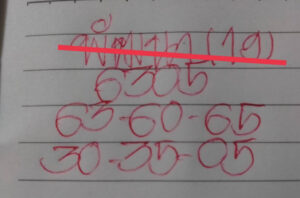 (19)
6305
63-60-65
30-35-05